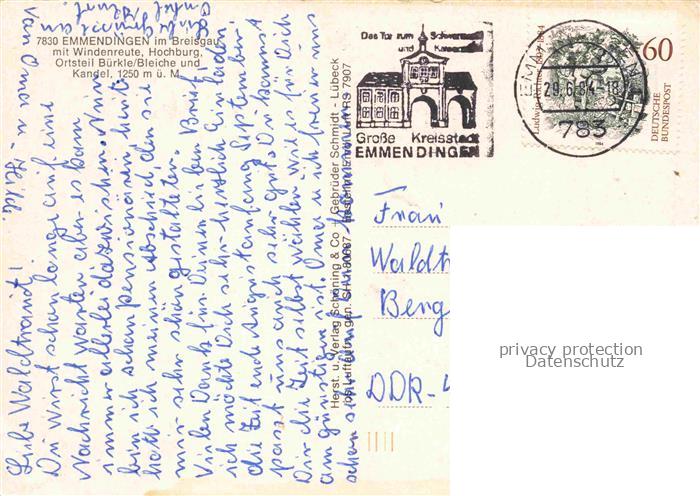 7830 EMMENDINGEN im Breisgau
mit Windenreute, Hochburg,
Ortsteil Bürkle/Bleiche und
Kandel, 1250 m ü. M.
Liebe Waldtraud!
Du wirst schon lange auf eine
Nachricht warten aber es kam
immer allerlei dazwischen. Nun
bin ich schon Pensionärin heute
hatte ich meinen Abschied den sie
mir sehr schön gestalteten.
Vielen Dank für Deinen lieben Brief
ich möchte Dich sehr herzlich einladen
die Zeit ende August anfang September
passt uns auch sehr gut. Du kannst
Dir die Zeit selbst wählen wie es für Dich
am günstigsten ist. Oma u. ich freuen uns
schon sehr
von Oma u.
Herst. u. Verlag Schöning & Co + Gebrüder Schmidt - Lübeck
Das Tor zum Schwarzwald
und Kaiserstuhl
Große Kreisstadt
EMMENDINGEN
29.6.84-18
783
Ludwig Richter 1803-1884
60
DEUTSCHE
BUNDESPOST
Frau
Waldtr
Berg
DDR-
privacy protection
Datenschutz